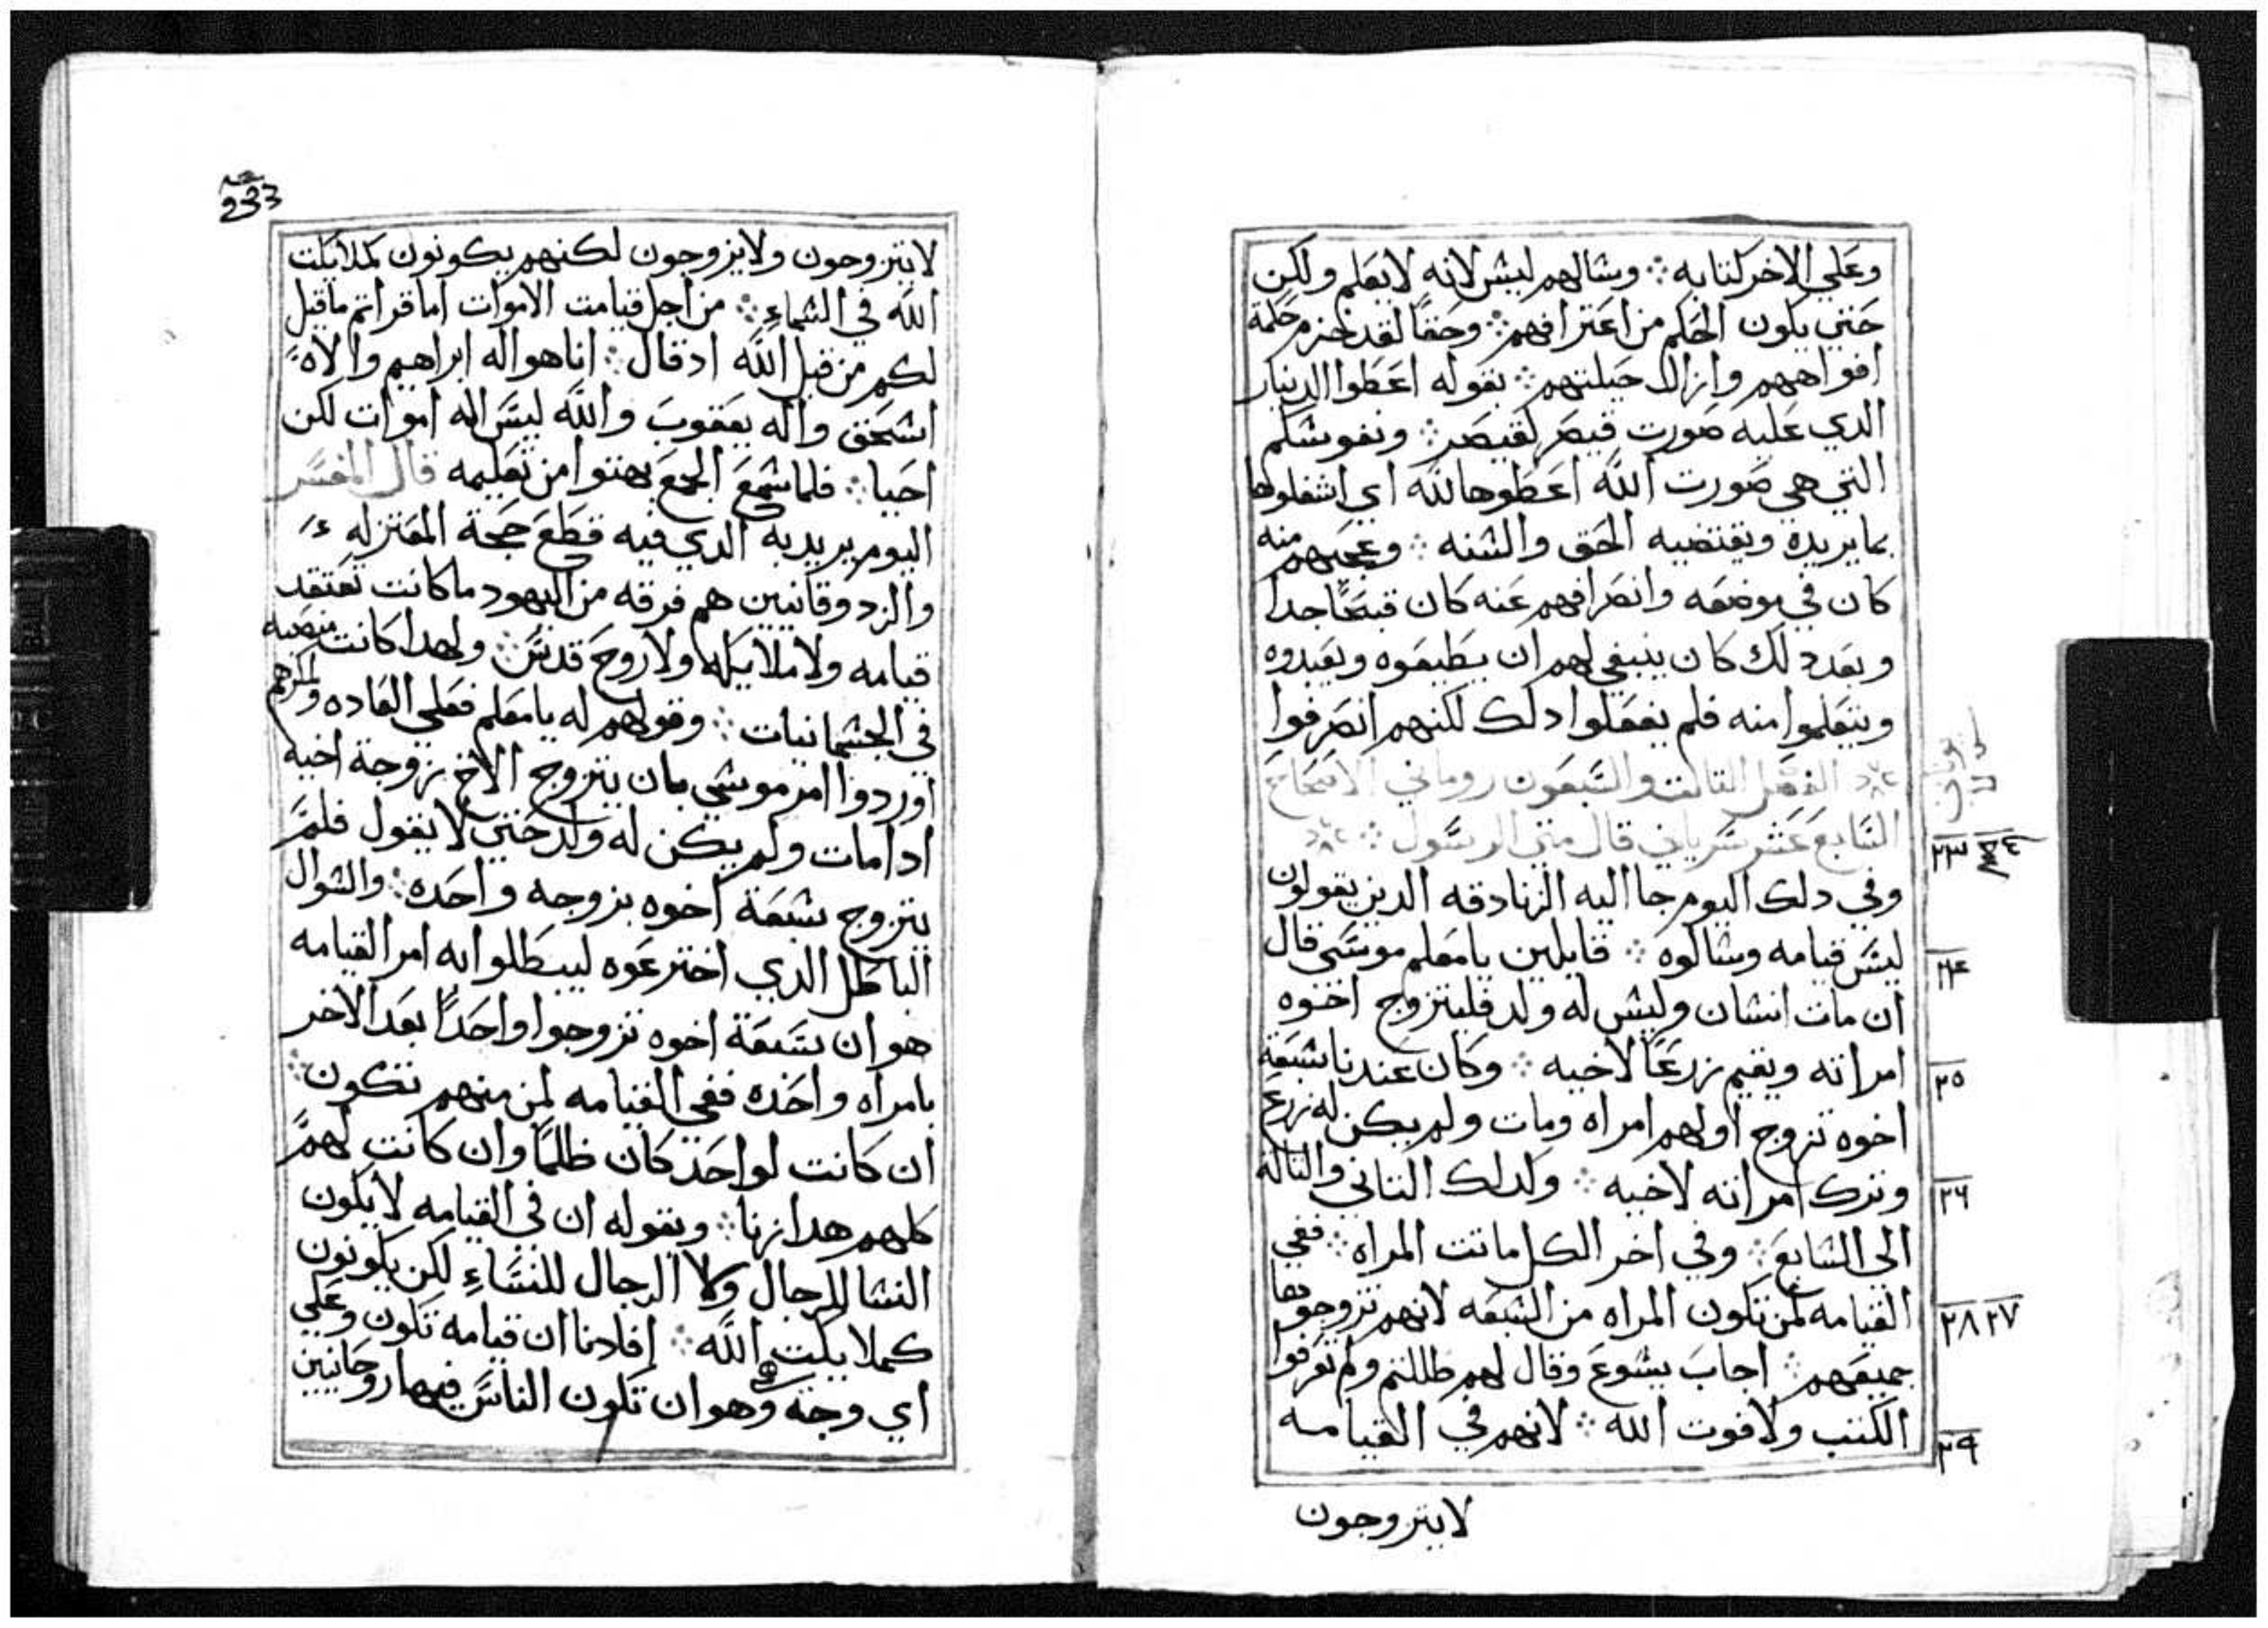 وعلي الاخر كتابه ؞ وسالهم ليس لانه لا يعلم ولكن
حتي يكون الحكم من اعترافهم ؞ وحقا لقد خزم حكمة
افواههم وازال حيلتهم ؞ بقوله اعطوا الدينار
الدي عليه صورت قيصر لقيصر ؞ ونفوسكم
التي هي صورت الله اعطوها لله اي اشغلوها
بما يريده ويقتضيه الحق والسنه ؞ وعجبهم منه
كان في موضعه وانصرافهم عنه كان قبيحا جدا
وبعد دلك كان ينبغي لهم ان يطيعوه ويعبدوه
ويتعلموا منه فلم يفعلوا دلك لكنهم انصرفوا
الفصل التالت والسبعون روماني الاصحاح
السابع عشر سرياني قال متي الرسول ؞
٢٣
وفي دلك اليوم جا اليه الزنادقه الدين يقولون
ليس قيامه وسالوه ؞ قايلين يا معلم موسي قال
٢٤
ان مات انسان وليس له ولد فليتزوج اخوه
امراته ويقيم زرعا لاخيه ؞ وكان عندنا سبعة
٢٥
اخوه تزوج اولهم امراه ومات ولم يكن له زرع
وترك امراته لاخيه ؞ وكدلك التاني والتالت
٢٦
الي السابع ؞ وفي اخر الكل ماتت المراه ؞ ففي
القيامه لمن تكون المراه من السبعه لانهم تزوجوها
٢٧ ٢٨
جميعهم ؞ اجاب يسوع وقال لهم ظللتم ولم تعرفوا
الكتب ولا قوت الله ؞ لانهم في القيامه
٢٩
لا يتزوجون
233
لا يتزوجون ولا يزوجون لكنهم يكونون كملايكت
الله في السماء ؞ من اجل قيامت الاموات اما قراتم ما قيل
لكم من قبل الله اد قال ؞ انا هو اله ابراهيم والاه
اسحق واله يعقوب والله ليس اله اموات لكن
احيا ؞ فلما سمع الجمع بهتوا من تعليمه قال المفسر
اليوم يريد به الدي فيه قطع حجة المعتزله
والزدوقانيين هم فرقه من اليهود ما كانت تعتقد
قيامه ولا ملايكه ولا روح قدس ؞ ولهدا كانت منصبه
في الجسمانيات ؞ وقولهم له يا معلم فعلي العاده
اوردوا امر موسي بان يتزوج الاخ بزوجة اخيه
ادا مات ولم يكن له ولد حتي لا يقول فلم
يتزوج سبعة اخوه بزوجه واحده ؞ والسوال
الباطل الدي اخترعوه ليبطلوا به امر القيامه
هو ان سبعة اخوه تزوجوا واحدا بعد الاخر
بامراه واحده ففي القيامه لمن منهم تكون ؞
ان كانت لواحد كان ظلما وان كانت لهم
كلهم هدا زنا ؞ وبقوله ان في القيامه لا يكون
النسا للرجال ولا الرجال للنساء لكن يكونون
كملايكت الله ؞ افادنا ان قيامه تكون وعلي
اي وجه وهو ان تكون الناس فيها روحانيين